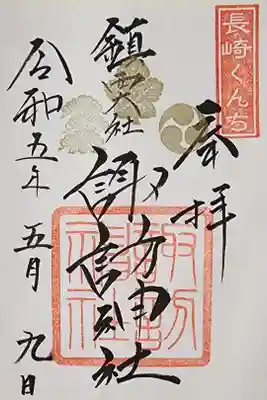 長崎くんち
奉拝
鎮西大社
諏方神社
令和五年五月九日